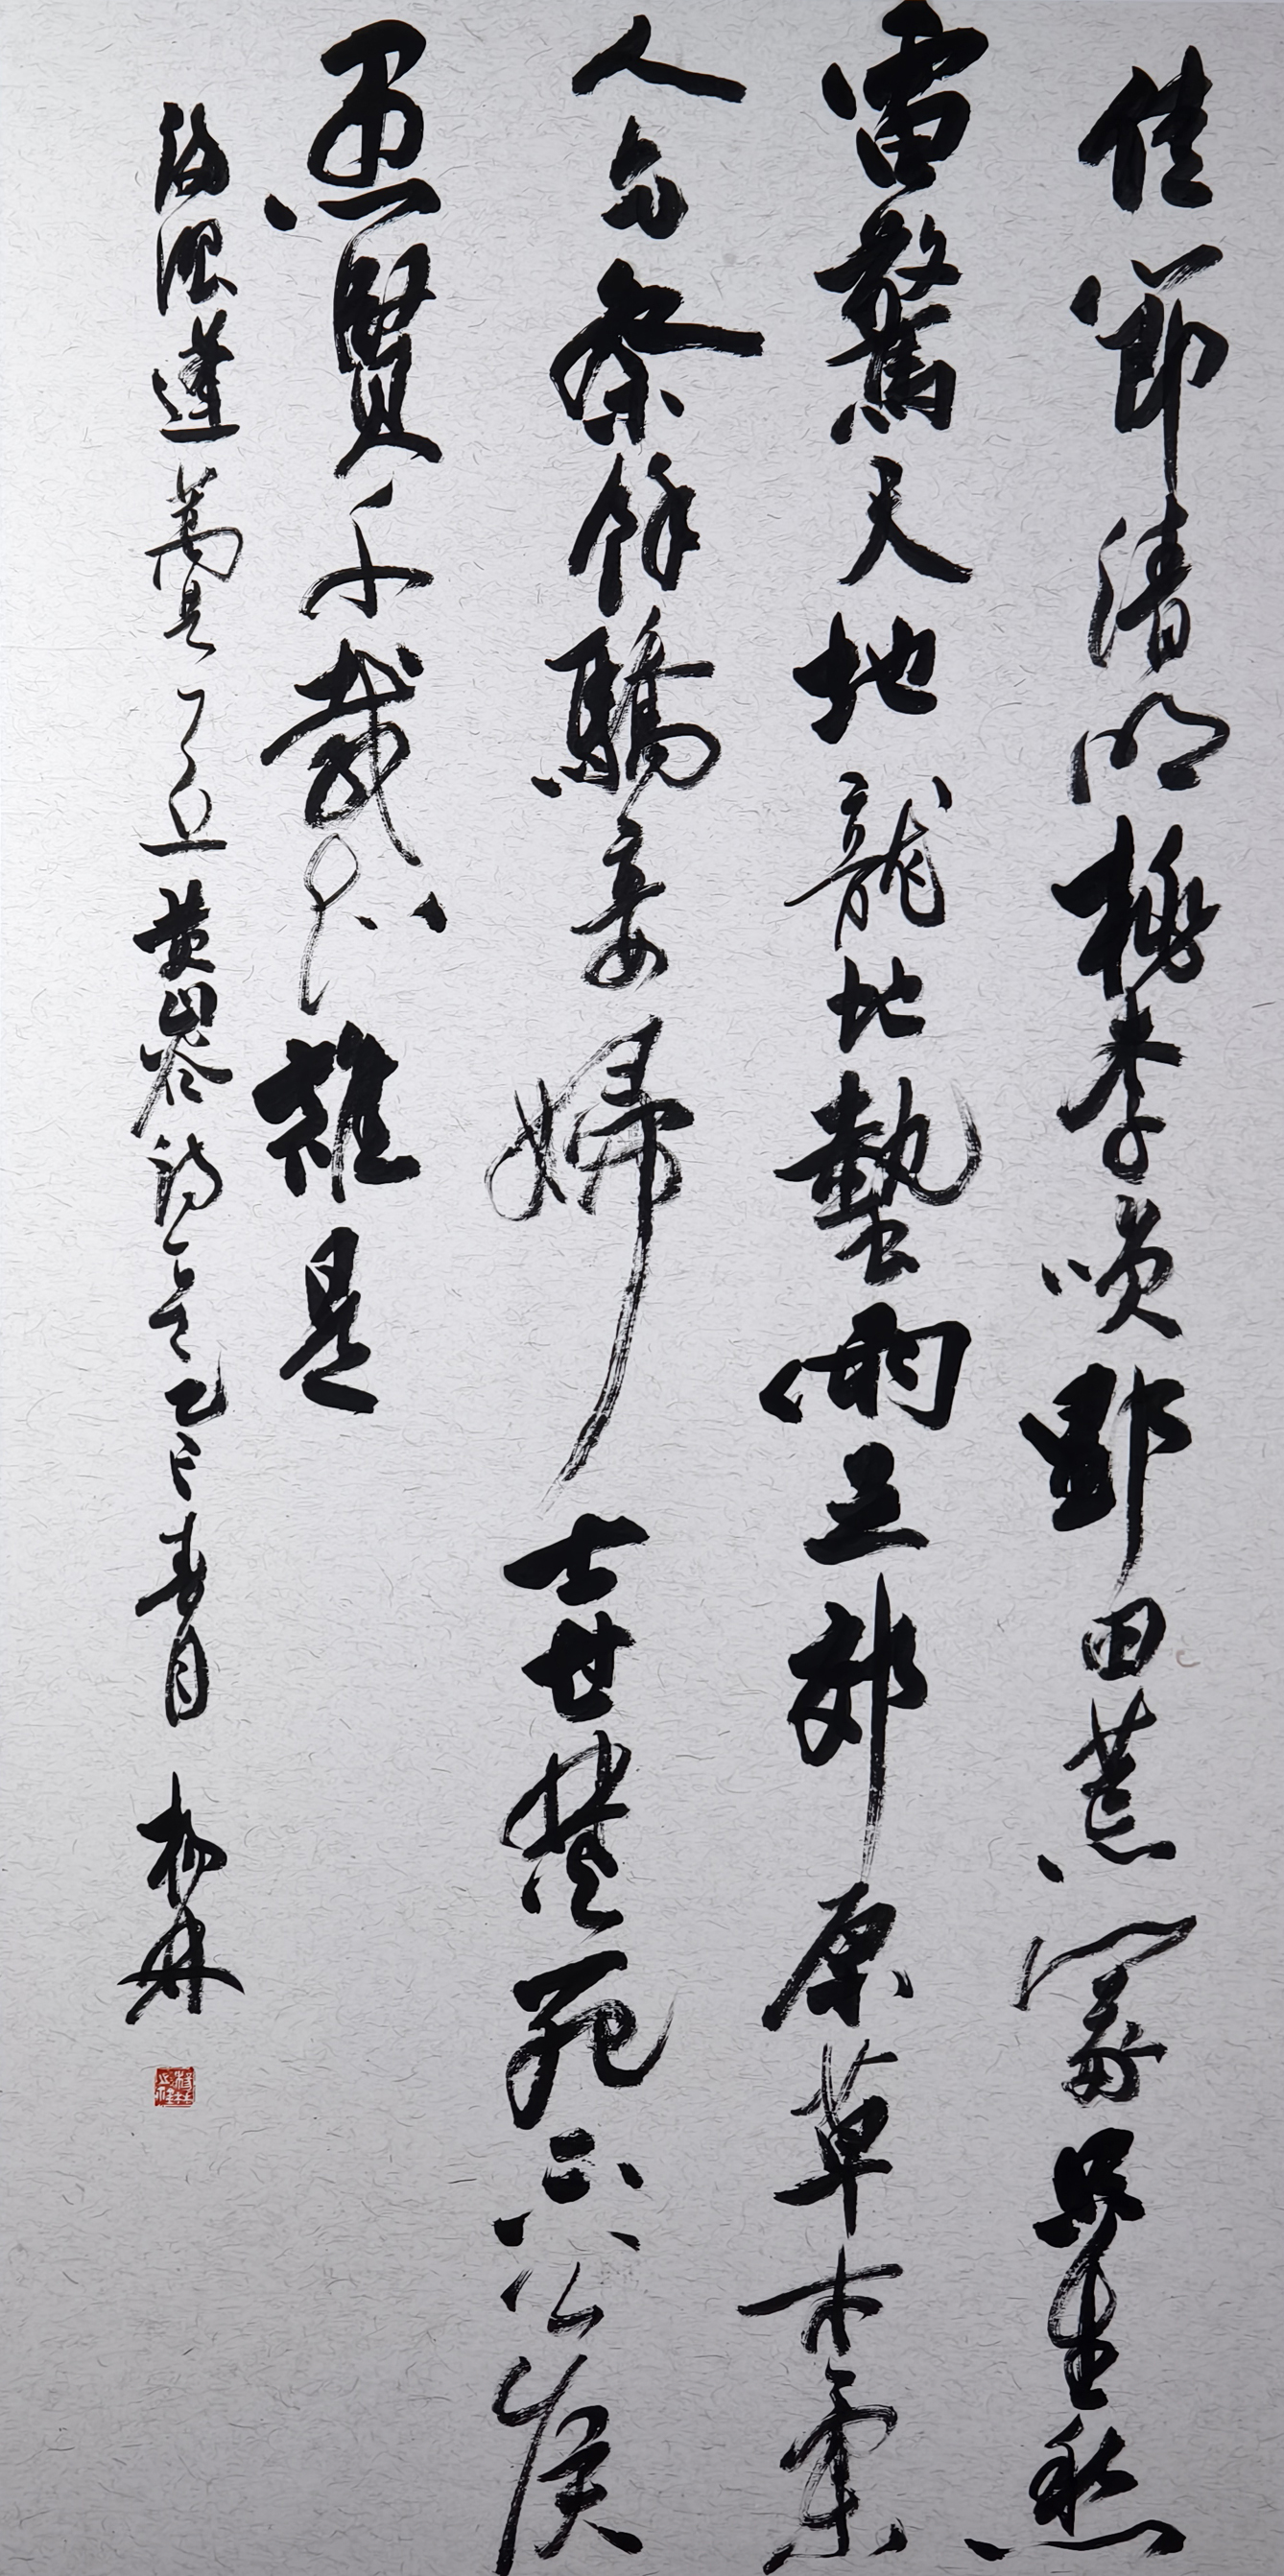 佳節清明桃李咲野田荒冢只生愁
雷驚天地龍蛇蟄雨足郊原草木柔
人乞祭餘驕妾婦士甘焚死不公侯
愚賢千載知誰是
滿眼蓬蒿共一丘黄山谷詩一首乙巳春月楊林